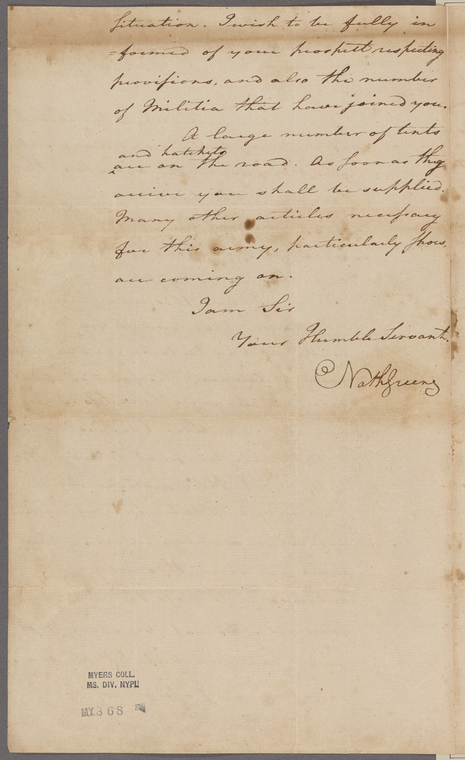 Situation. I wish to be fully in
=formed of your prospect respecting
provisions, and also the number
of Militia that have joined you.
A large number of tents
and hatchets
^ are on the road. As soon as they
arrive you shall be supplied.
Many other articles necessary
for this army, particularly shoes,
are coming on.
I am Sir
Your Humble Servant,
NathGreene
MYERS COLL.
MS. DIV. NYPL
MY368